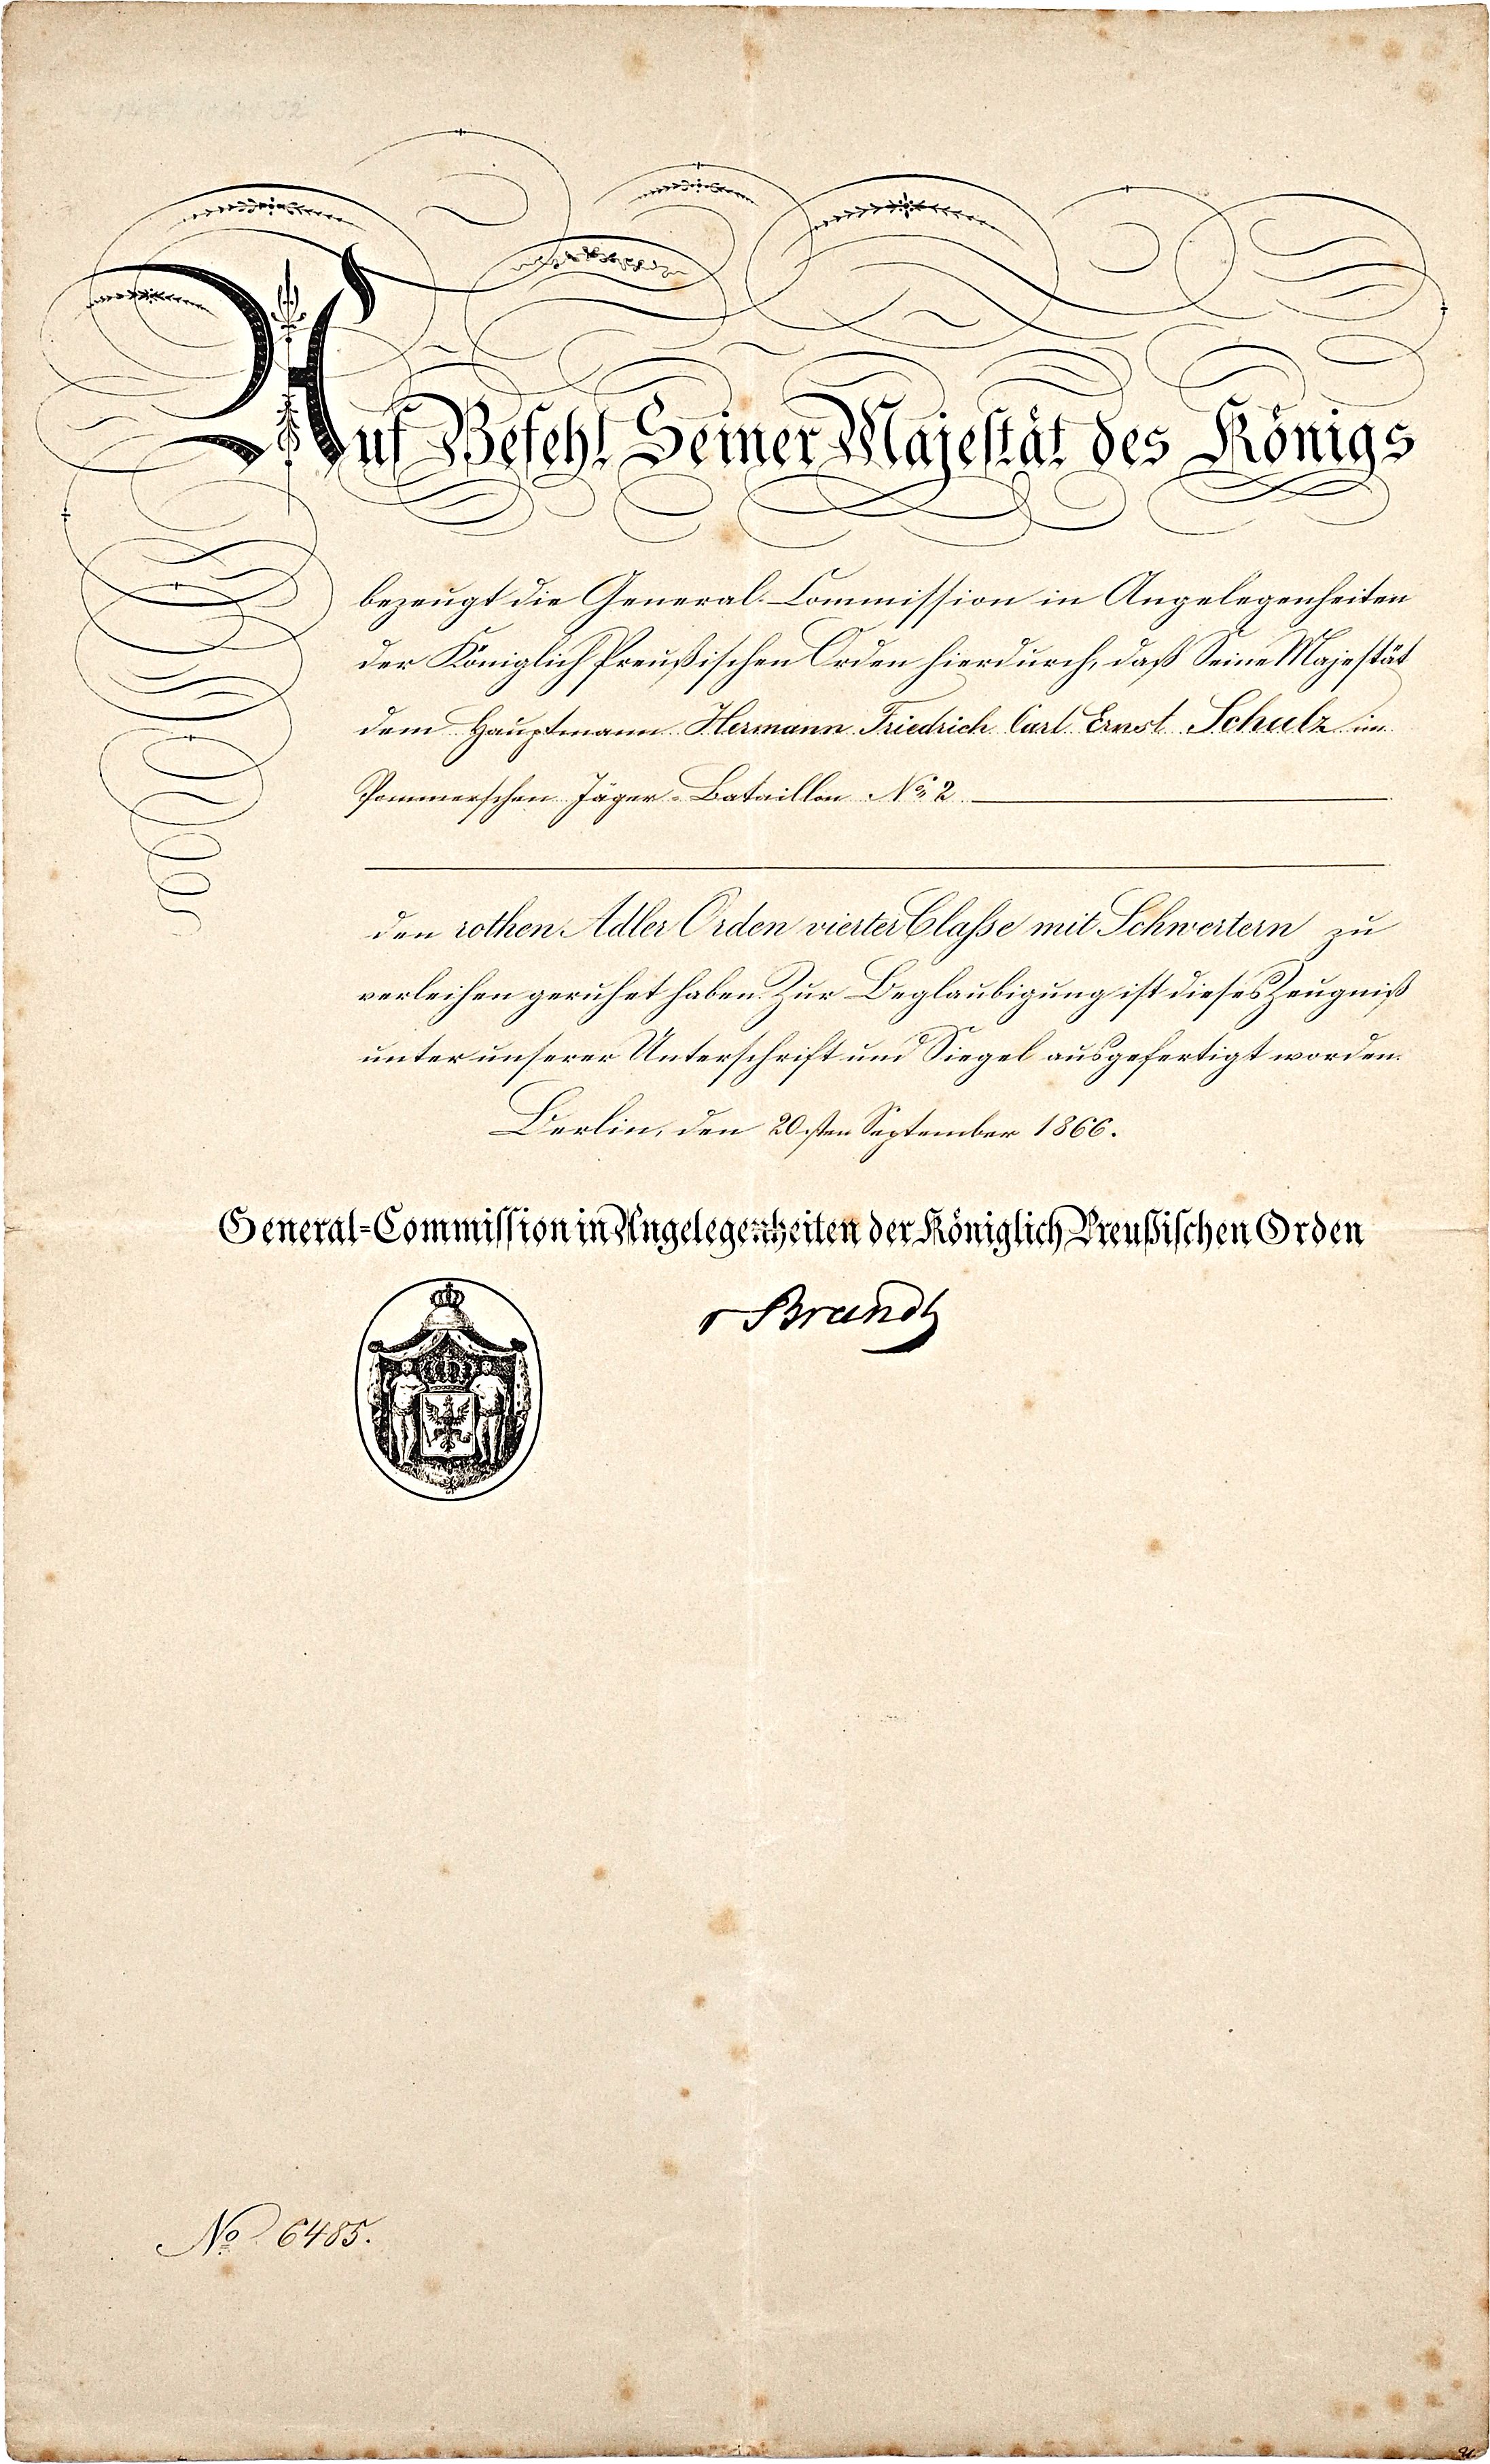 Auf Befehl Seiner Majestät des Königs
bezeugt die General-Commission in Angelegenheiten
der Königlich Preußischen Orden hierdurch, daß Seine Majestät
dem Hauptmann Hermann Friedrich Carl Ernst Schulz im
Pommerschen Jäger-Bataillon No. 2
den rothen Adler Orden vierter Claße mit Schwertern zu
verleihen geruhet haben. Zur Beglaubigung ist dieses Zeugniß
unter unserer Unterschrift und Siegel ausgefertigt worden.
Berlin, den 20sten September 1866.
General-Commission in Angelegenheiten der Königlich Preußischen Orden
Brandt
No 6485.